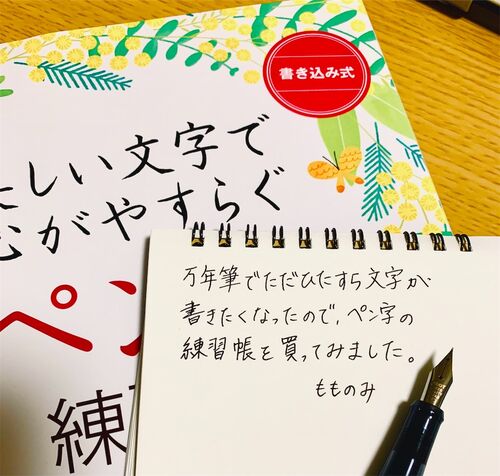 書き込み式
しい文字で
がやすらぐ
ペン
練
万年筆でただひたすら文字が
書きたくなったので、ペン字の
練習帳を買ってみました。
もものみ